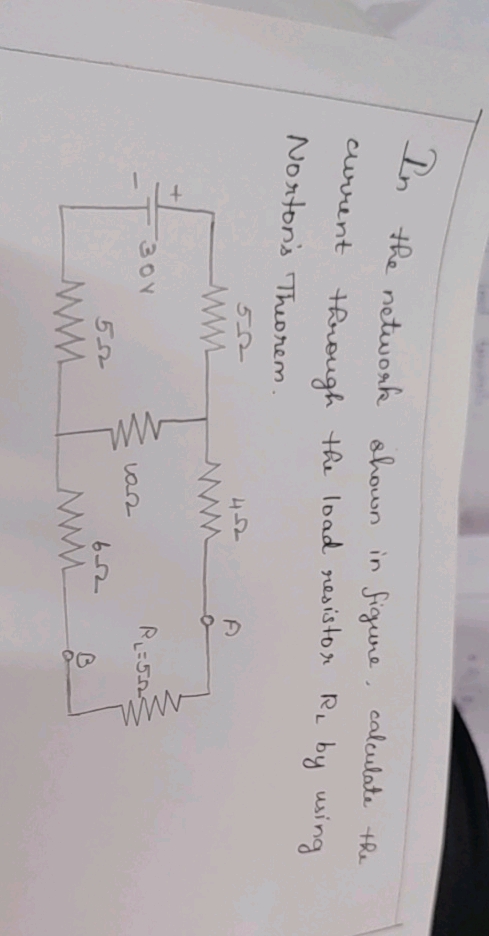 In the network shown in figure, calculate the
current through the load resistor RL by using
Norton's Theorem.
5Ω 4Ω A
+
30V
-
10Ω
RL=5Ω
5Ω 6Ω B